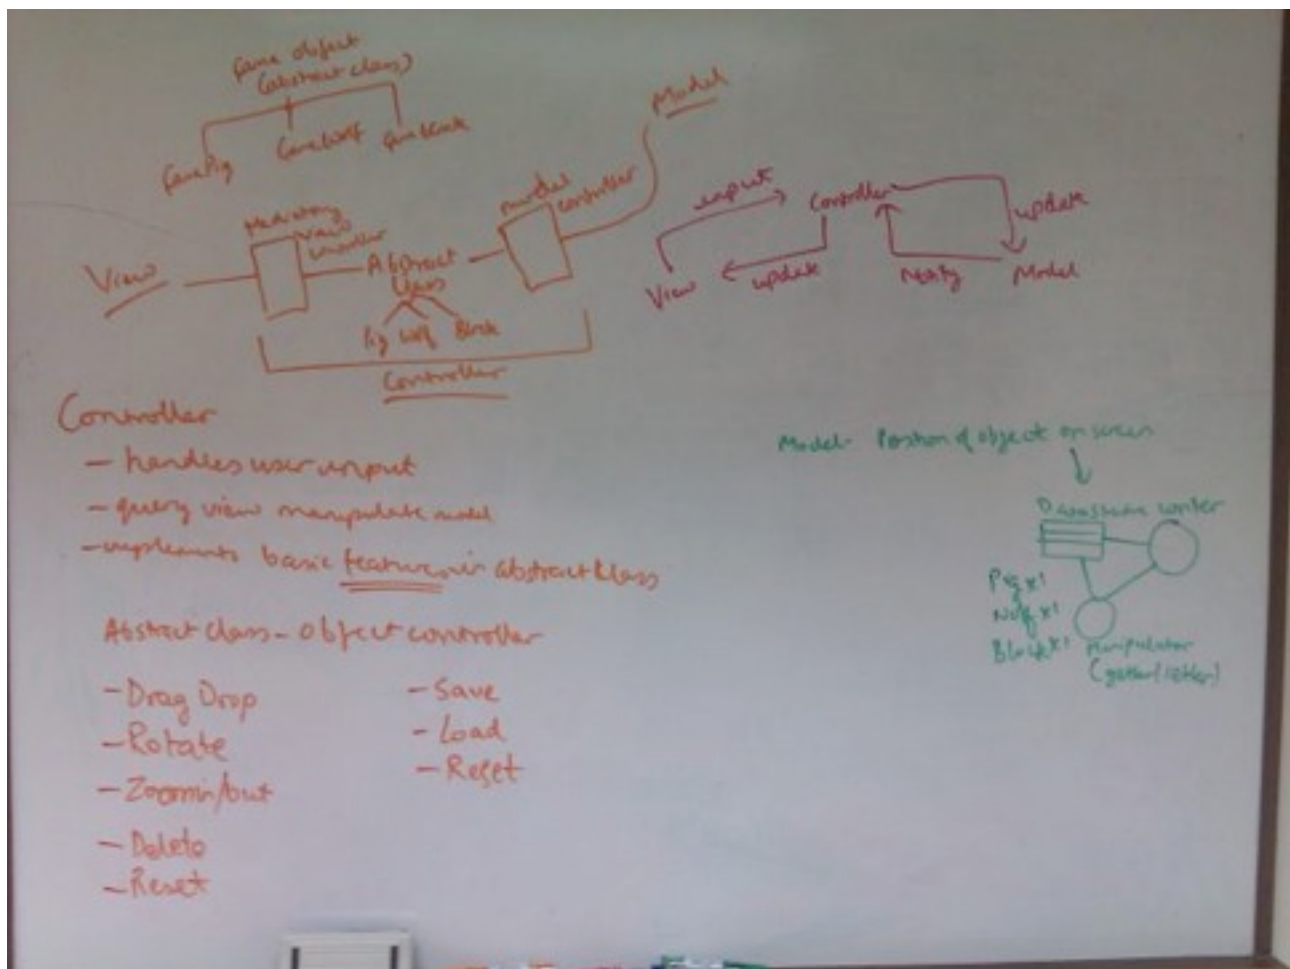 Game object
(abstract class)
GamePig
GameWolf
GameBlock
Model
View
Mediating
view
controller
Abstract
Class
model
controller
Pig Wolf Block
Controller
input
Controller
update
View
update
Notify
Model
Controller
- handles user input
- query view manipulate model
- implements basic features in abstract class
Abstract class - Object controller
- Drag Drop
- Rotate
- Zoom in/out
- Delete
- Reset
- Save
- Load
- Reset
Model - Position of object on screen
Pig x1
Wolf x1
Block x1
Manipulator
(getter/setter)